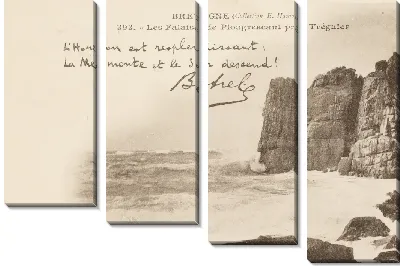 BRETAGNE (Collection E. Hamon
393. - Les Falaises de Plougrescant près Tréguier
L'Horizon est resplendissant;
La Mer monte et le Soir descend!
Botrel